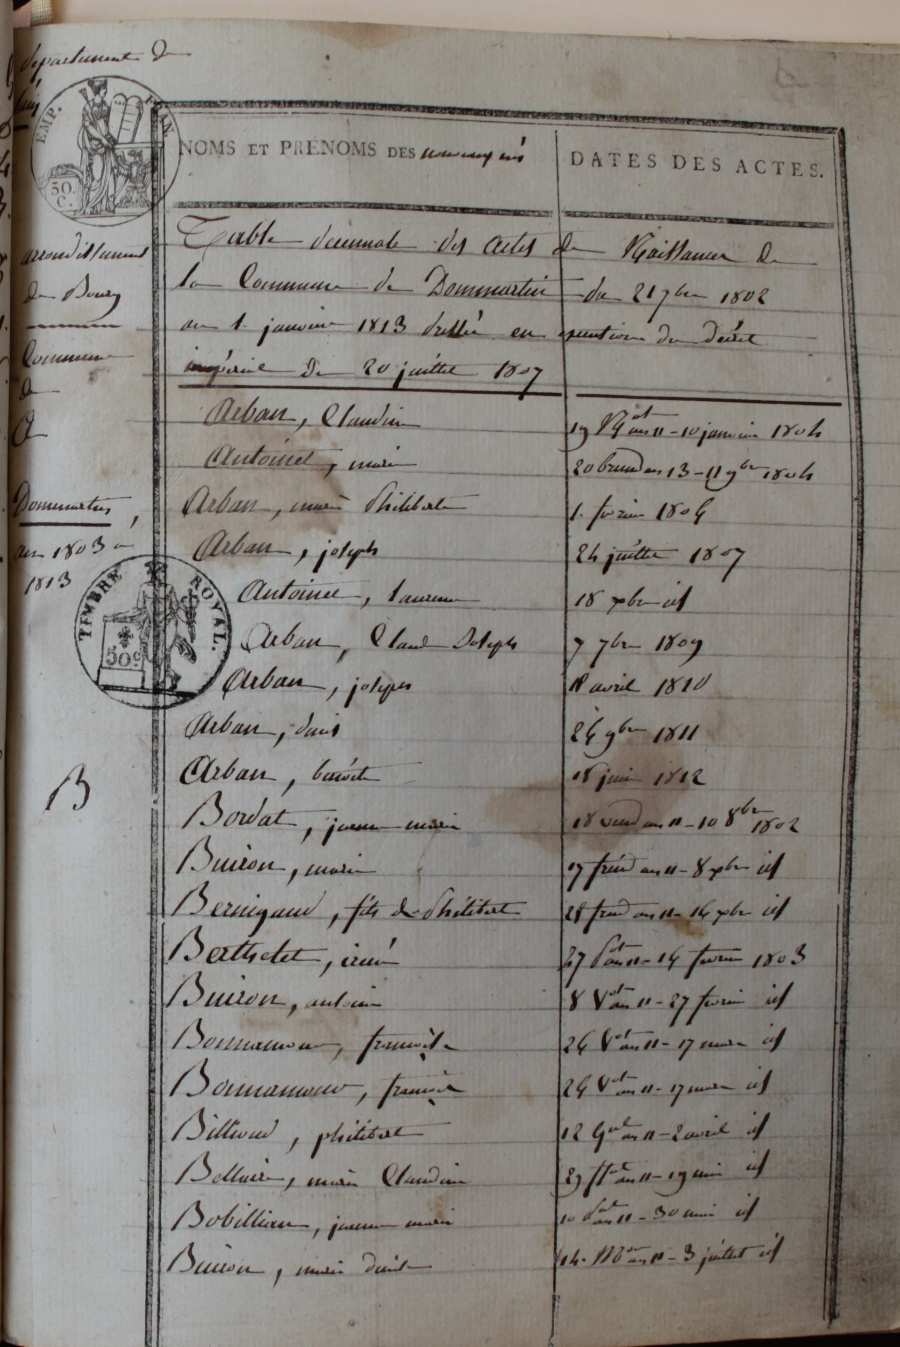 département de
l'ain
EMP. FRAN.
50. C.
arrondissement
de Bourg
Commune
de
Dommartin,
an 1803 a
1813
TIMBRE ROYAL.
50c
B
NOMS ET PRÉNOMS DES nouveaux nés
DATES DES ACTES.
Table décennale des actes de Naissance de
la Commune de Dommartin du 21 7bre 1802
au 1. janvier 1813 dressée en exécution du décret
impérial du 20 juillet 1807
Arban, Claudine 19 an 11 - 10 janvier 1804
Antoinet, marie 20 brum an 13 - 11 9bre 1804
Arban, marie Philiberte 1. fevrier 1806
Arban, joseph 24 juillet 1807
Antoinet, laurence 18 xbre id
Arban, Claude Joseph 7 7bre 1809
Arban, joseph 18 avril 1810
Arban, denis 24 9bre 1811
Arban, benoit 18 juin 1812
Bordat, jeanne marie 18 vend an 11 - 10 8bre 1802
Buiron, marie 17 frim an 11 - 8 xbre id
Bernigaud, fils de Philibert 28 frim an 11 - 14 xbre id
Berthelet, irené 27 an 11 - 14 fevrier 1803
Buiron, antoine 8 Vot an 11 - 27 fevrier id
Bonnamour, françoise 26 Vot an 11 - 17 mars id
Bonnamour, françois 26 Vot an 11 - 17 mars id
Billioud, philibert 12 Gal an 11 - 2 avril id
Bellair, marie Claudine 29 fal an 11 - 19 mai id
Bobillier, jeanne marie 10 an 11 - 30 mai id
Buiron, marie denise 14 an 11 - 3 juillet id